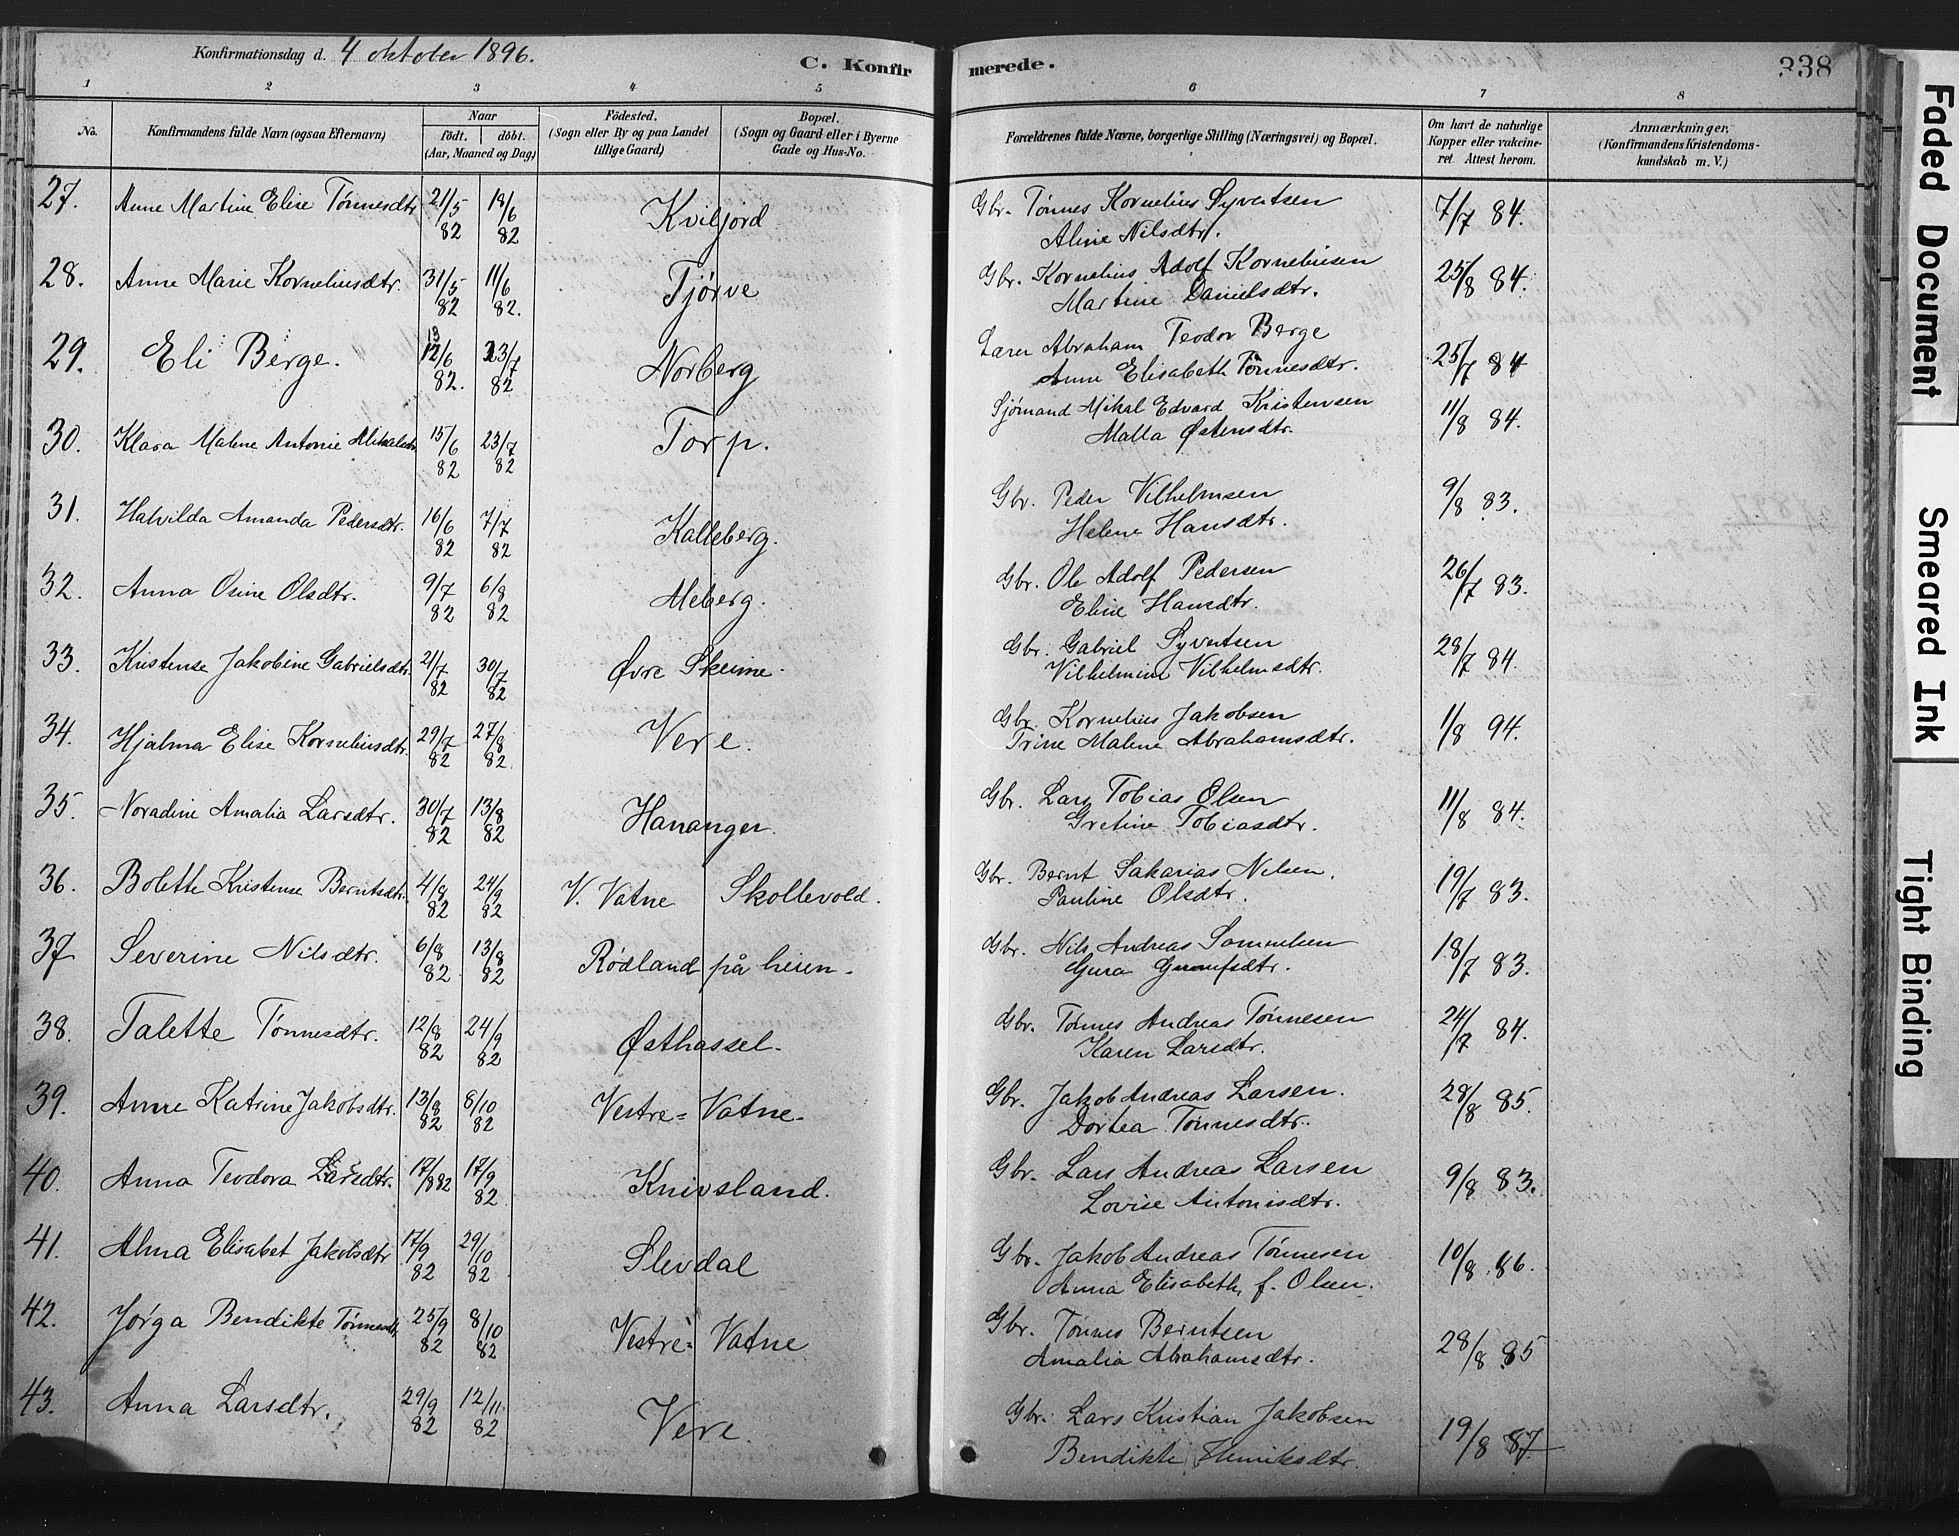 Konfirmationsdag d. 4 oktober 1896.
C. Konfirmerede.
338
1 2 3 4 5 6 7 8
No.
Konfirmandens fulde Navn (ogsaa Efternavn)
Naar
födt. döbt.
(Aar, Maaned og Dag)
Födested.
(Sogn eller By og paa Landet
tillige Gaard)
Bopæl.
(Sogn og Gaard eller i Byerne
Gade og Hus-No.
Forældrenes fulde Navne, borgerlige Stilling (Næringsvei) og Bopæl.
Om havt de naturlige
Kopper eller vakcine-
ret. Attest herom.
Anmærkninger.
(Konfirmandens Kristendoms-
kundskab m. V.)
27. Anne Martine Elise Tønnesdtr. 21/5 82 18/6 82 Kviljord Gbr. Tønnes Kornelius Syvertsen 7/7 84.
Aline Nilsdtr.
28. Anne Marie Korneliusdtr. 31/5 82 11/6 82. Tjørve Gbr. Kornelius Adolf Korneliusen 25/8 84.
Martine Danielsdtr.
29. Eli Berge. 12/6 82. 23/7 82 Norberg Lærer Abraham Teodor Berge 25/7 84
Anne Elisabeth Tønnesdtr.
30. Klara Malene Antonie Mikalsdtr 15/6 82 23/7 82 Torp. Sjømand Mikal Edvard Kristensen 11/8 84.
Malla Østensdtr.
31. Halvilda Amanda Pedersdtr. 16/6 82 7/7 82 Kalleberg. Gbr. Peder Vilhelmsen 9/8 83.
Helene Hansdtr.
32. Anna Osine Olsdtr. 9/7 82 6/8 82 Meberg. Gbr. Ole Adolf Pedersen 26/7 83.
Eline Hansdtr.
33. Kristense Jakobine Gabrielsdtr. 21/7 82 30/7 82 Øvre Skeime. Gbr. Gabriel Syvertsen 28/7 84.
Vilhelmine Vilhelmsdtr.
34. Hjalma Elise Korneliusdtr. 29/7 82 27/8 82. Vere. Gbr. Kornelius Jakobsen 1/8 94.
Trine Malene Abrahamsdtr.
35. Noradine Amalia Larsdtr. 30/7 82 13/8 82 Hananger. Gbr. Lars Tobias Olsen 11/8 84.
Gretine Tobiasdtr.
36. Bolette Kristense Berntsdtr. 4/8 82 24/9 82 V. Vatne Skollevold. Gbr. Bernt Sakarias Nilsen. 19/7 83.
Pauline Olsdtr.
37 Severine Nilsdtr. 6/8 82 13/8 82 Rødland på heien. Gbr. Nils Andreas Samuelsen 18/7 83.
Guro
38. Talette Tønnesdtr. 12/8 82 24/9 82 Østhassel. Gbr. Tønnes Andreas Tønnesen 24/7 84.
Karen Larsdtr.
39. Anne Katrine Jakobsdtr. 13/8 82 8/10 82 Vestre-Vatne. Gbr. Jakob Andreas Larsen. 28/8 85.
Dortea Tønnesdtr.
40. Anna Teodora Larsdtr. 17/8 82 17/9 82 Knivsland. Gbr. Lars Andreas Larsen 9/8 83.
Lovise Antonisdtr.
41. Alma Elisabet Jakobsdtr 17/9 82 29/10 82 Slevdal Gbr. Jakob Andreas Tønnesen 10/8 86.
Anna Elisabeth, f. Olsen.
42. Jørga Bendikte Tønnesdtr. 25/9 82 8/10 82 Vestre-Vatne Gbr. Tønnes Berntsen 28/8 85
Amalia Abrahamsdtr.
43. Anna Larsdtr. 29/9 82 12/11 82 Vere. Gbr. Lars Kristian Jakobsen 19/8 87.
Bendikte Henriksdtr.
Faded Document
Smeared Ink
Tight Binding